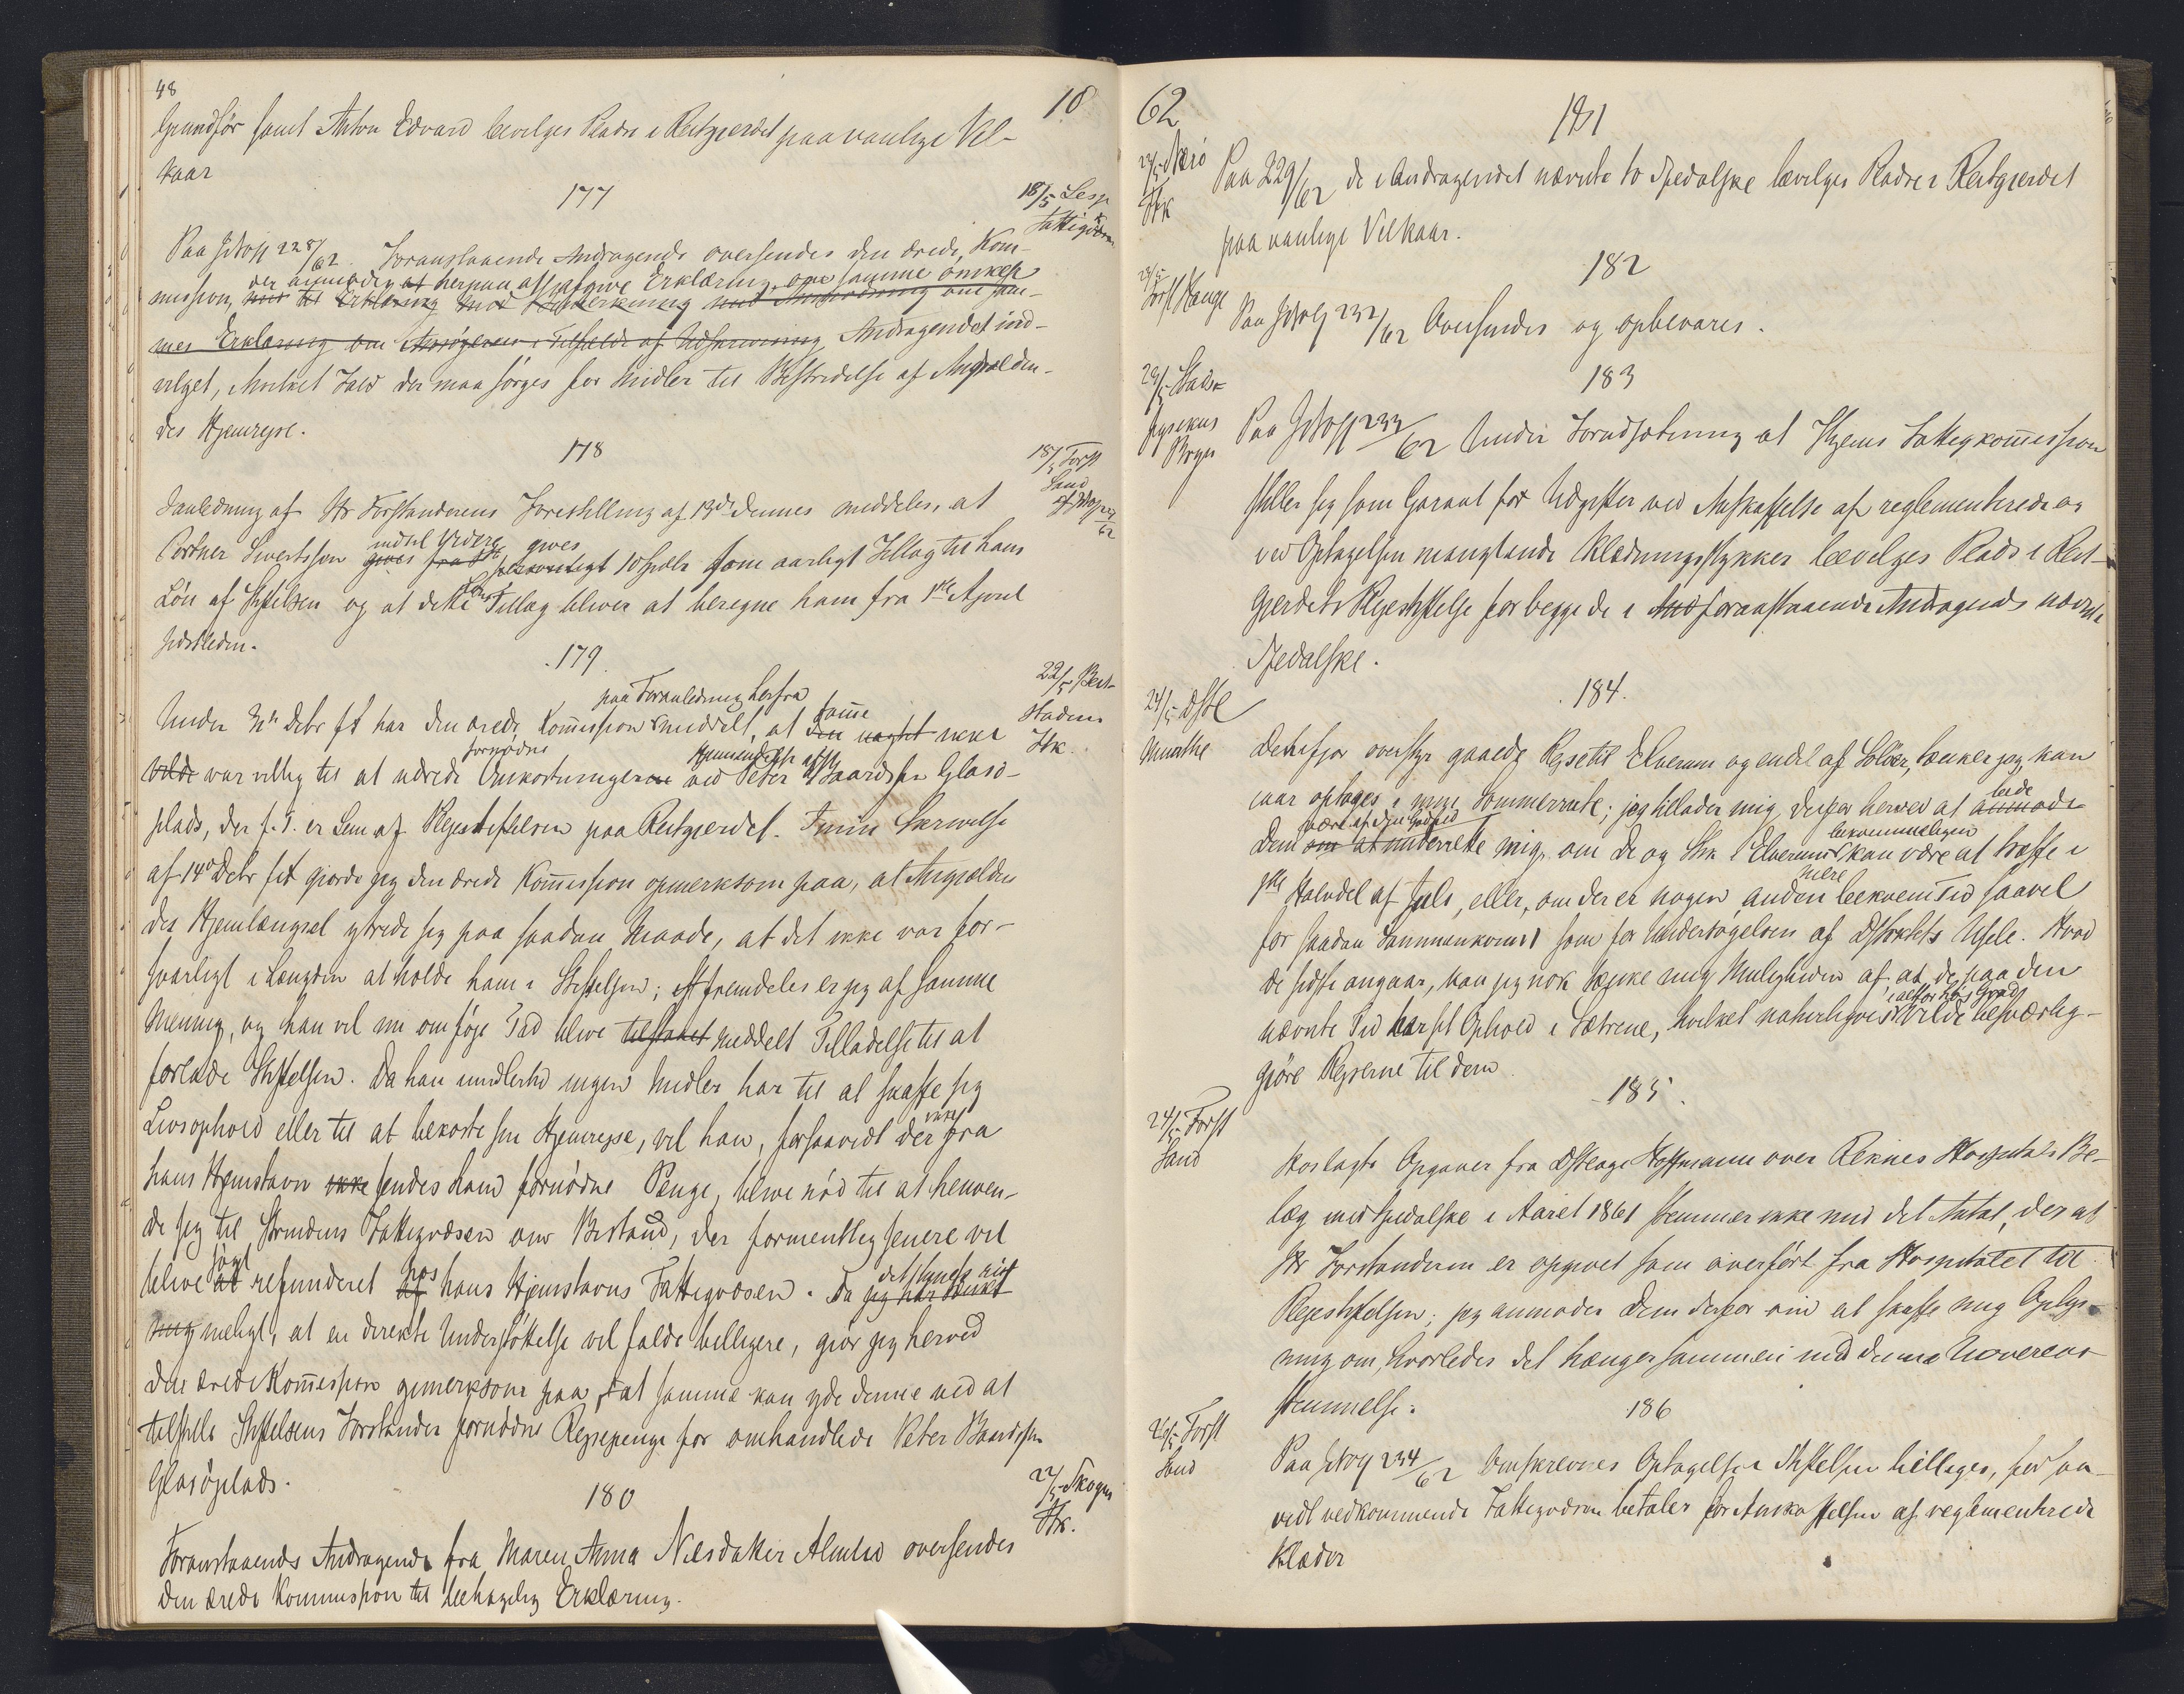 48
18
Grundsør samt Anton Edvard bevilges Plads i Reitgjerdet paa vanlige Vil-
kaar
177
18/5 Lesje
Fattigk
Paa JNo 228/62. Foranstaaende Andragende oversendes den ærede Kom-
mission, der anmodes at herpaa afgive Erklæring, om samme ønskes
mes Erklæring om Ansøgeren i Tilfælde af Udskrivning Andragendet ind-
vilget, hvilket Fald der maa sørges for Midler til Bestridelse af Angjælden-
des Hjemrejse.
178
18/5 Forst
Sand
I Anledning af Hr Forstanderens Forestilling af 13de dennes meddeles, at
Portner Sivertsson indtil Videre gives 10 Spdlr som aarligt Tillæg til hans
Løn af Stiftelsen og at dette Tillæg bliver at beregne ham fra 1ste April
sidstleden.
179
22/5 Bert-
Stadens
Ftk.
Under Decbr f A har den ærede Kommission paa Foranledning herfra meddelt, at samme ikke
vilde var villig til at udrede fornødne Omkostninger ved Peter Baardsen Glasø-
plads, der f. T. er Lem af Plejestiftelsen paa Reitgjerdet. I min Skrivelse
af 14de Decbr f A gjorde jeg den ærede Kommission opmerksom paa, at Angjælden-
des Hjemlængsel ytrede sig paa saadan Maade, at det ikke var for-
svarligt i Længden at holde ham i Stiftelsen; fremdeles er jeg af samme
Mening, og han vil nu om føje Tid blive tilstaaet meddelt Tilladelse til at
forlade Stiftelsen. Da han imidlertid ingen Midler har til at skaffe sig
Livsophold eller til at bekoste sin Hjemrejse, vil han, forsaavidt der ikke fra
hans Hjemstavn ikke sendes ham fornødne Penge, blive nød til at henven-
de sig til Strindens Fattigvæsen om Bistand, der formentlig senere vil
blive søgt refunderet hos hans Hjemstavns Fattigvæsen. Da det synes rig
mig meligt, at en direkte Understøttelse vil falde billigere, gjør jeg herved
den ærede Kommission opmerksom paa, at samme kan yde denne ved at
tilstille Stiftelsens Forstander fornødne Rejsepenge for omhandlede Peter Baardsen
Glasøplads.
180
22/5 Skogn
Ftk.
Foranstaaende Andragende fra Maren Anna Nilsdatter Almlid oversendes
den ærede Kommission til behagelig Erklæring.
62
181
22/5 Nærø
Ftk
Paa 229/62 de i Andragendet nævnte to Spedalske bevilges Pladse i Reitgjerdet
paa vanlige Vilkaar.
182
Forst Kauge
Paa JNo 232/62 Oversendes og opbevares.
183
23/5 Stads-
fysikus
Paa JNo 233/62 Under Forudsætning at Hjems Fattigkommission
stiller sig som Garant for Udgifter ved Anskaffelse af reglementerede og
ved Optagelsen manglende Klædningsstykker bevilges Plads i Reit-
gjerdets Plejestiftelse for begge de i foranstaaende Andragende nævnte
Spedalske.
184.
24/5 Dstl
Munthe
Den ifjor overstyr gaaede Rejse til Elverum og endel af Solør, tænker jeg, kan
iaar optages i min Sommerrute; jeg tillader mig derfor herved at bede
Dem være af den Godhed at underrette mig om De og Shk i Elverum bekvemmeligen kan være at træffe i
1ste Halvdel af Juli, eller, om der er nogen anden mere bekvem Tid saavel
for saadan Sammenkomst som for Undersøgelsen af Distriktets Usele. Hvad
de sidste angaar, kan jeg nok tænke mig Muligheden af, at de paa den
nævnte Tid har sit Ophold i Sætrene, hvilket naturligvis i altfor høj Grad vilde besværlig-
gjøre Rejserne til dem
185.
24/5 Forst
Sand
Hoslagte Opgaver fra Dstlæge Hoffmann over Reknes Hospitals Be-
læg med Spedalske i Aaret 1861 stemmer ikke med det Antal, der af
Hr Forstanderen er opgivet som overført fra Hospitalet til
Plejestiftelsen; jeg anmoder Dem derfor om at skaffe mig Oplys-
ning om, hvorledes det hænger sammen med denne Uoverens-
stemmelse.
186
26/5 Forst
Sand
Paa JNo 234/62 Omskrevnes Optagelse i Stiftelsen billiges, forsaa-
vidt vedkommende Fattigvæsen betaler for Anskaffelsen af reglementerede
Klæder